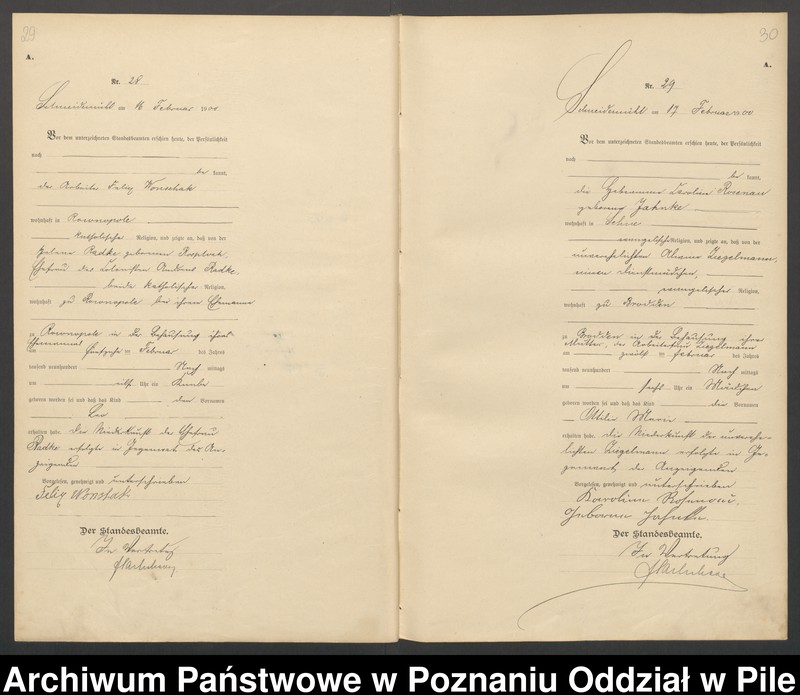 29
A.
Nr. 28
Schneidemühl am 16 Februar 1900
Vor dem unterzeichneten Standesbeamten erschien heute, der Persönlichkeit
nach
be kannt,
der Arbeiter Felix
wohnhaft in Rosenopole
katholischer Religion, und zeigte an, daß von der
Helena Radke geborenen
Ehefrau des Andreas Radke,
beide katholischer Religion,
wohnhaft zu Rosenopole bei ihrem Ehemanne
zu Rosenopole in der Behausung ihres
Ehemannes
am fünfzehn ten Februar des Jahres
tausend neunhundert Nach mittags
um Uhr ein Knabe
geboren worden sei und daß das Kind den Vornamen
Leo
erhalten habe. Die Niederkunft der Ehefrau
Radke erfolgte in Gegenwart des An-
zeigenden
Vorgelesen, genehmigt und unterschrieben
Felix Wonstak
Der Standesbeamte.
In Vertretung
30
A.
Nr. 29
Schneidemühl am 17 Februar 1900
Vor dem unterzeichneten Standesbeamten erschien heute, der Persönlichkeit
nach
be kannt,
die Hebamme Karoline Rosenau
geborene Jahnke
wohnhaft in
evangelischer Religion, und zeigte an, daß von der
unverehelichten Ziegelmann,
einem Dienstmädchen,
evangelischer Religion,
wohnhaft zu Brodden
zu Brodden in der Behausung ihrer
Mutter, der Arbeiterfrau Ziegelmann
am zwölf ten Februar des Jahres
tausend neunhundert Nach mittags
um sechs Uhr ein Mädchen
geboren worden sei und daß das Kind die Vornamen
Ottilie Marie
erhalten habe. Die Niederkunft der unverehe-
lichten Ziegelmann erfolgte in Ge-
genwart der Anzeigenden
Vorgelesen, genehmigt und unterschrieben
Karoline Rosenau
geborene Jahnke
Der Standesbeamte.
In Vertretung
Archiwum Państwowe w Poznaniu Oddział w Pile